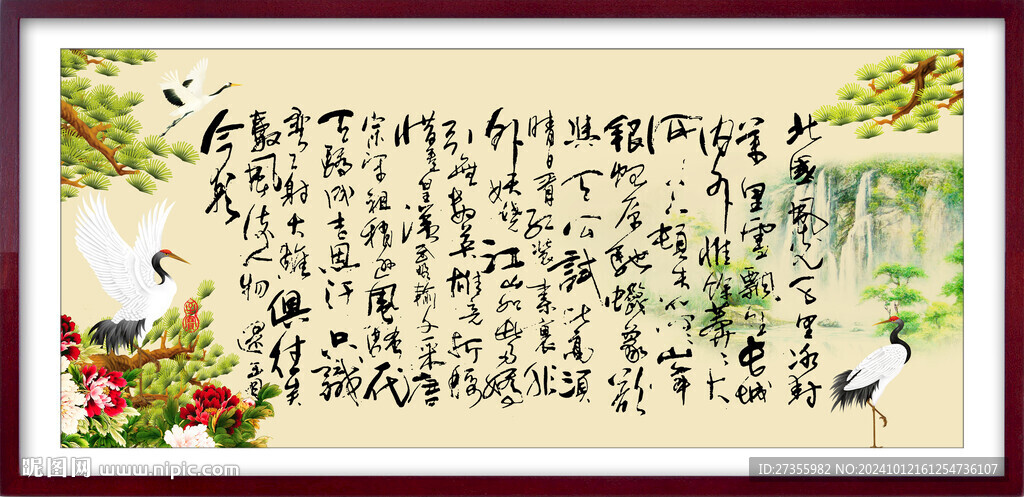 北國風光千里冰封
萬里雪飄望長城
内外惟餘莽莽大
河上下頓失滔滔山舞
銀蛇原馳蠟象欲
與天公試比高須
晴日看紅裝素裹分
外妖嬈江山如此多嬌
引無數英雄竞折腰
惜秦皇漢武略輸文采唐
宗宋祖稍遜風騷一代
天驕成吉思汗只識
彎弓射大雕俱往矣
數風流人物還看
今朝
昵图网 www.nipic.com
ID:27355982 NO:20241012161254736107